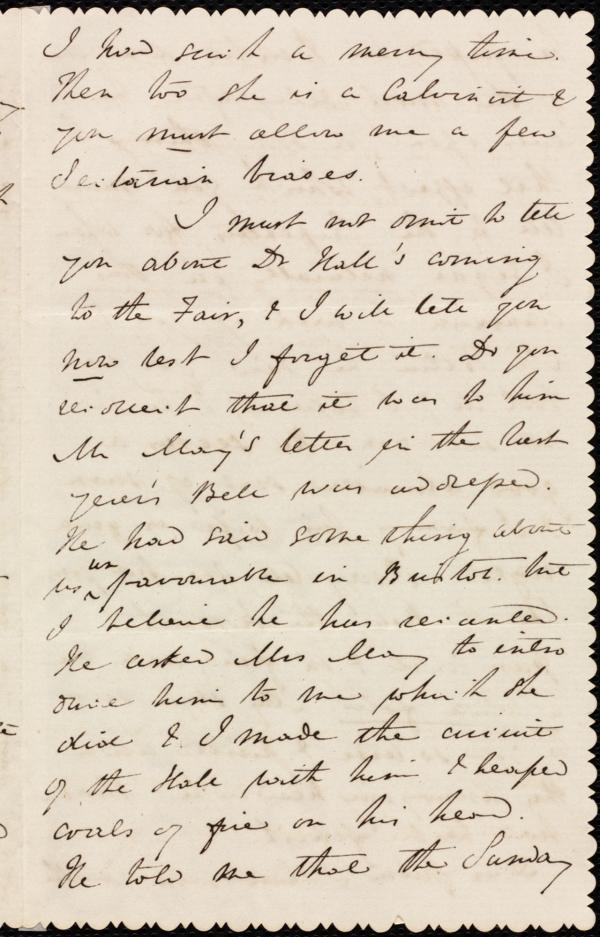 I had such a merry time.
Then too she is a Calvinist &
you must allow me a few
Sectarian biases.
I must not omit to tell
you about Dr Hall's coming
to the Fair, & I will tell you
now lest I forget it. Do you
recollect that it was to him
Mr May's letter in the last
year's Bell was addressed.
He had said something about
us unfavourable in Bristol. but
I believe he has recanted.
He asked Mrs May to intro
duce him to me which she
did & I made the circuit
of the Hall with him & heaped
coals of fire on his head.
He told me that the Sunday